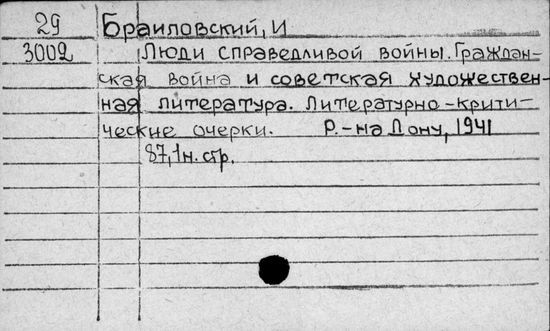 29 Браиловский, И
3002 Люди справедливой войны. Граждан-
ская война и советская художествен-
ная литература. Литературно-крити-
ческие очерки. Р.-на Дону, 1941
87, 1 н. стр.